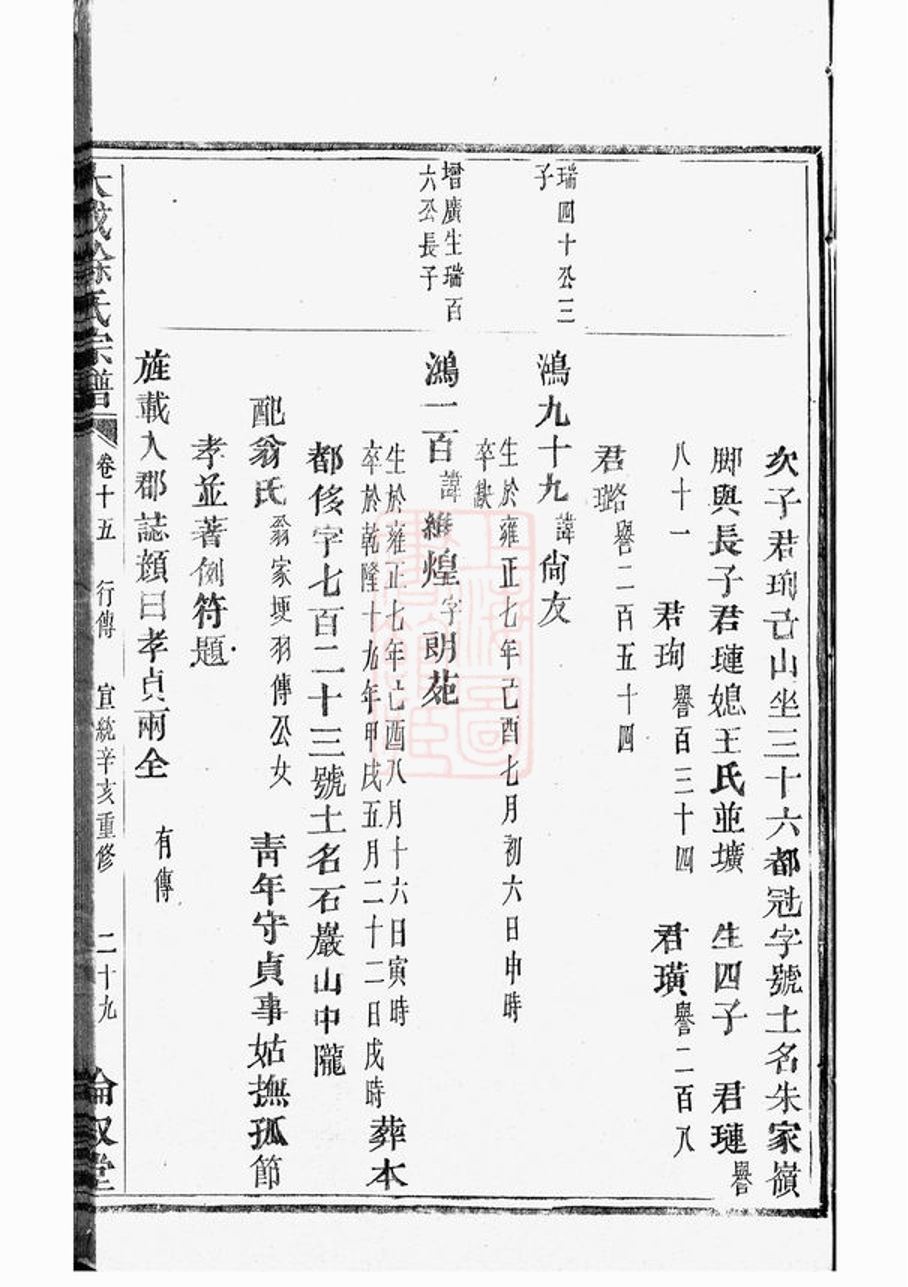 次子君珣亡山坐三十六都冠字號土名朱家嶺
脚與長子君璉媳王氏並壙 生四子 君璉譽
八十一 君珣譽百三十四 君璜譽二百八
君璐譽二百五十四
瑞四十公三
子
鴻九十九諱尙友
生於雍正七年己酉七月初六日申時
卒缺
增廣生瑞百
六公長子
鴻二百諱維煌字朗苑
生於雍正七年己酉八月十六日寅時
卒於乾隆十九年甲戌五月二十二日戌時 葬本
都俊字七百二十三號土名石巖山中隴
配翁氏翁家埂羽傳公女 靑年守貞事姑撫孤節
孝並著例符題
旌載入郡誌顔曰孝貞兩全 有傳
徐氏宗譜 卷十五 行傳 宣統辛亥重修 二十九 倫敘堂
上海圖書館藏